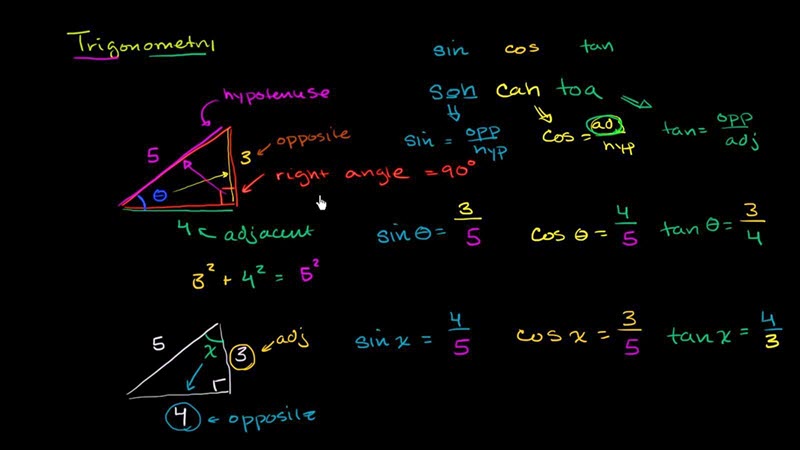 Trigonometry
sin cos tan
hypotenuse
soh cah toa
sin = opp/hyp
cos = adj/hyp
tan = opp/adj
5
3
opposite
θ
right angle = 90°
4 adjacent
sin θ = 3/5
cos θ = 4/5
tan θ = 3/4
3² + 4² = 5²
5
x
3
adj
4
opposite
sin x = 4/5
cos x = 3/5
tan x = 4/3